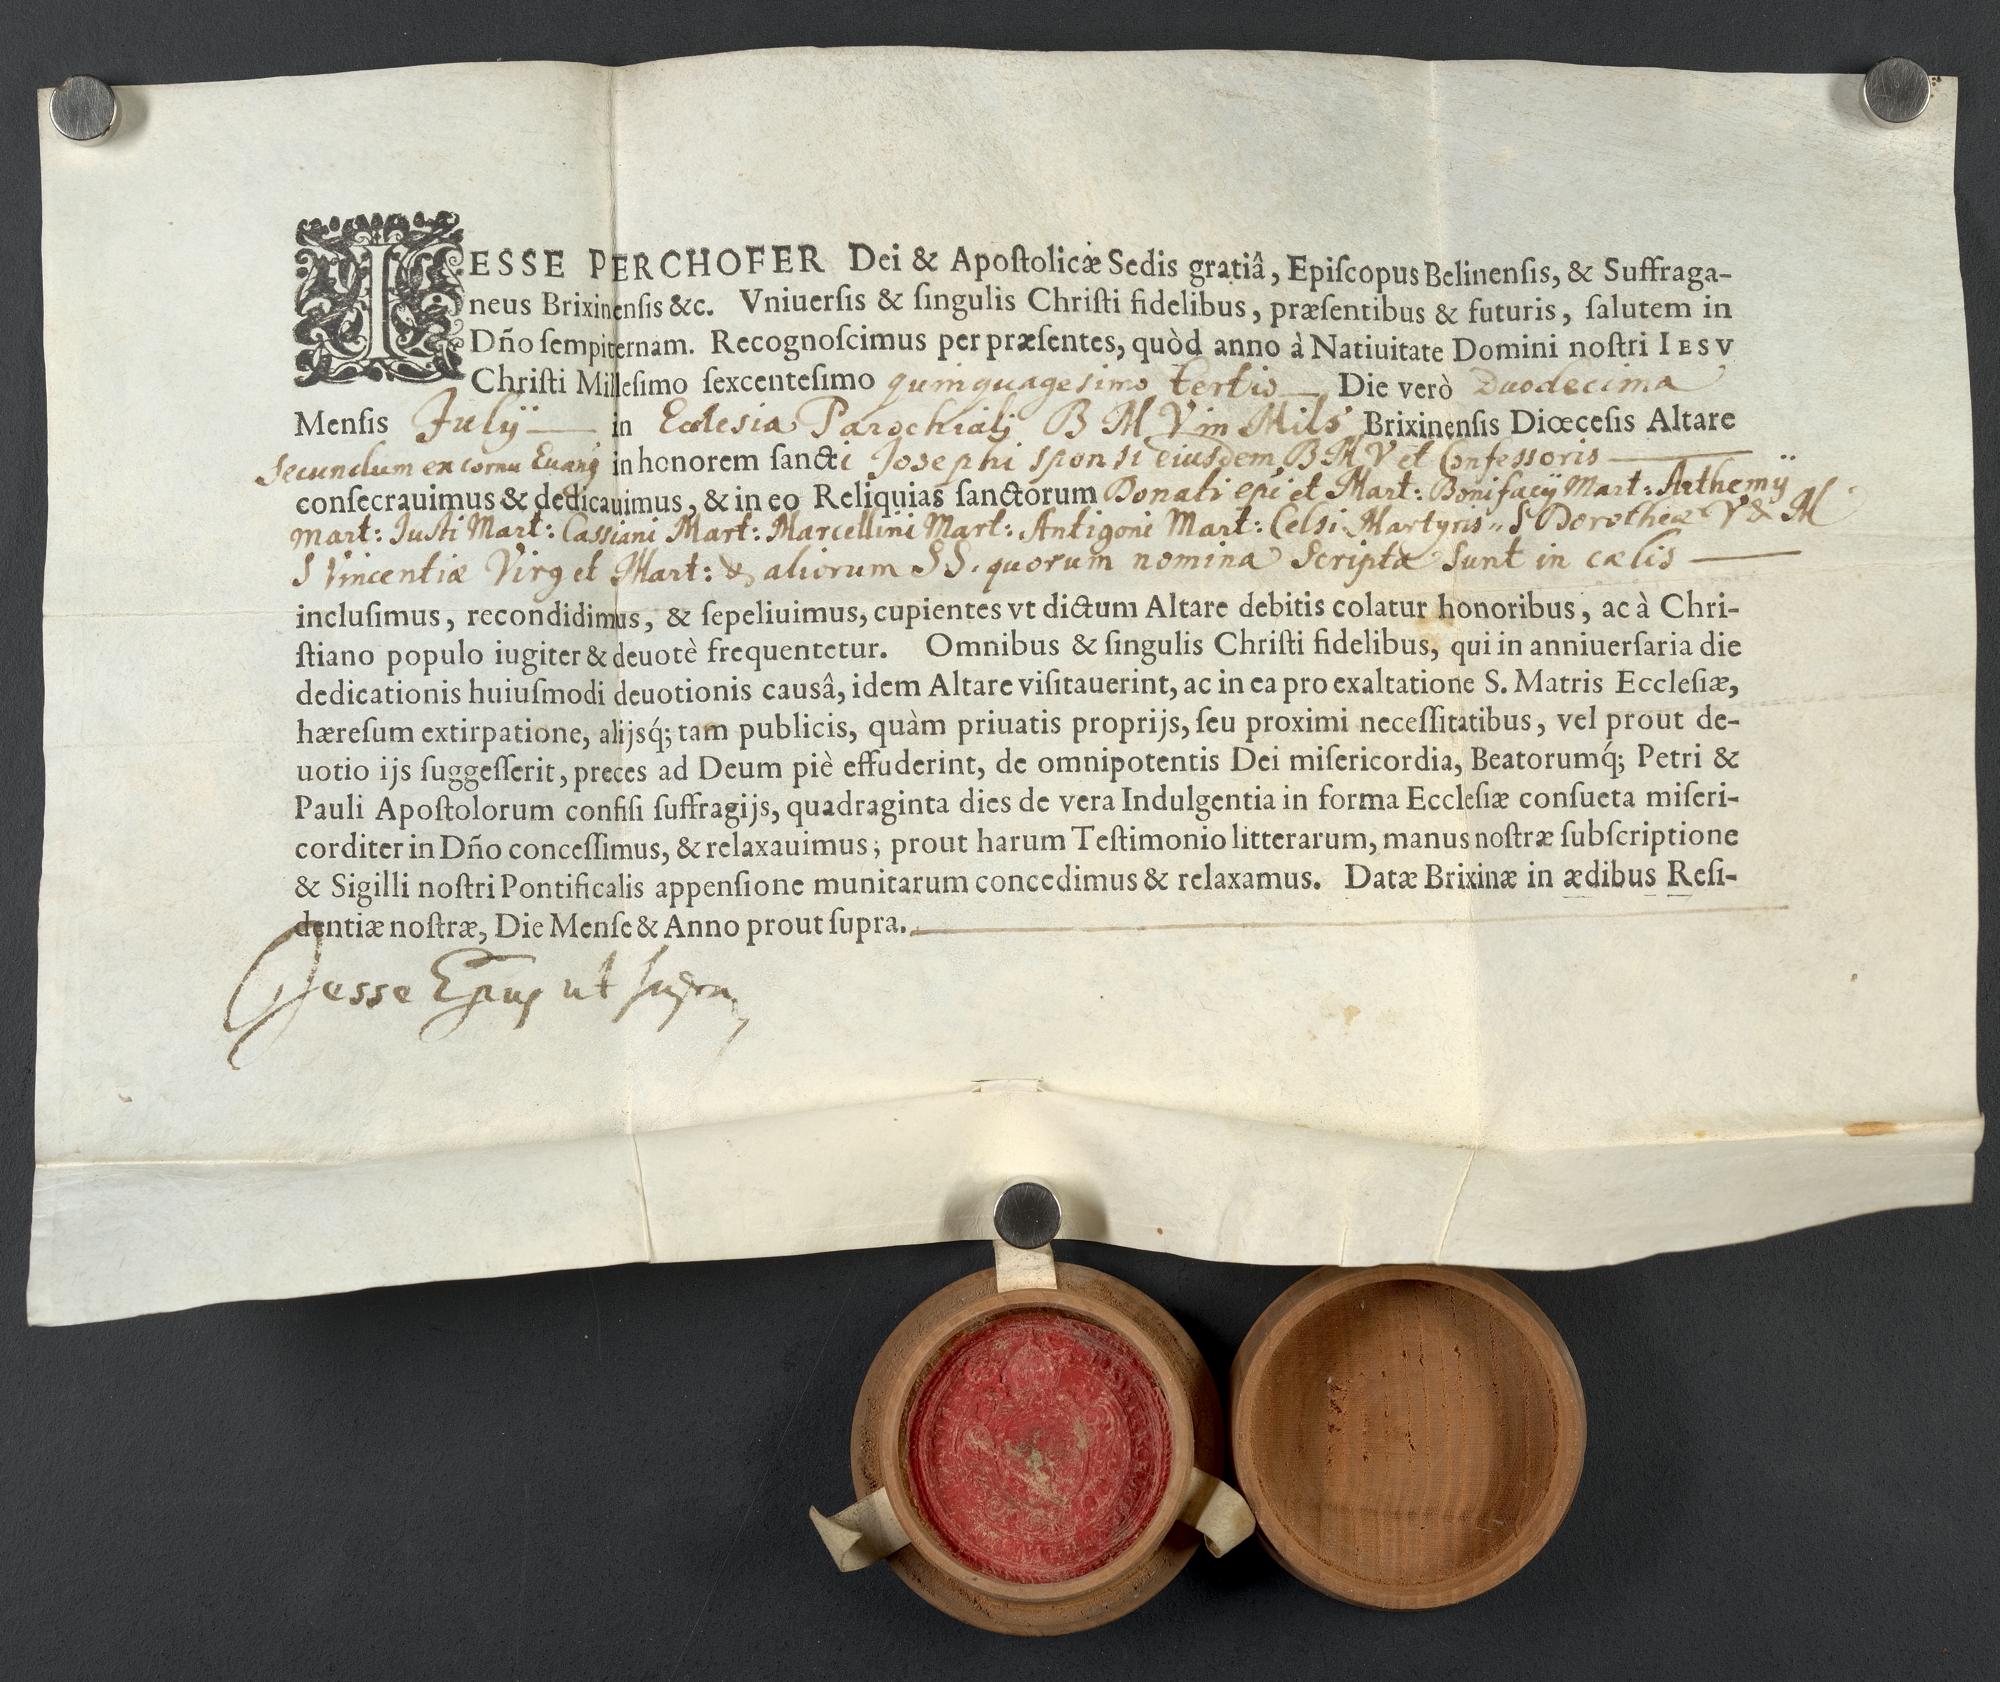 IESSE PERCHOFER Dei & Apoſtolicæ Sedis gratiâ, Epiſcopus Belinenſis, & Suffraga-
neus Brixinenſis &c. Vniuerſis & ſingulis Chriſti fidelibus, præſentibus & futuris, ſalutem in
Dño ſempiternam. Recognoſcimus per præſentes, quòd anno à Natiuitate Domini noſtri IESV
Chriſti Milleſimo ſexcenteſimo quinquagesimo tertio Die verò Duodecima
Menſis Julÿ in Ecclesia Parochiali B M V in Mils Brixinenſis Diœceſis Altare
secundum ex cornu Euang in honorem ſancti Josephi sponsi eiusdem B M V et Confessoris
conſecrauimus & dedicauimus, & in eo Reliquias ſanctorum Donati epi et Mart: Bonifacÿ Mart: Arthemÿ
Mart: Justi Mart: Cassiani Mart: Marcellini Mart: Antigoni Mart: Celsi Martyris S Dorotheæ V & M
S Vincentiæ Virg et Mart: & aliorum SS. quorum nomina Scripta Sunt in cælis
incluſimus, recondidimus, & ſepeliuimus, cupientes vt dictum Altare debitis colatur honoribus, ac à Chri-
ſtiano populo iugiter & deuotè frequentetur. Omnibus & ſingulis Chriſti fidelibus, qui in anniuerſaria die
dedicationis huiuſmodi deuotionis causâ, idem Altare viſitauerint, ac in ea pro exaltatione S. Matris Eccleſiæ,
hæreſum extirpatione, alijsq́; tam publicis, quàm priuatis proprijs, ſeu proximi neceſſitatibus, vel prout de-
uotio ijs ſuggeſſerit, preces ad Deum piè effuderint, de omnipotentis Dei miſericordia, Beatorumq́; Petri &
Pauli Apoſtolorum confiſi ſuffragijs, quadraginta dies de vera Indulgentia in forma Eccleſiæ conſueta miſeri-
corditer in Dño conceſſimus, & relaxauimus; prout harum Teſtimonio litterarum, manus noſtræ ſubſcriptione
& Sigilli noſtri Pontificalis appenſione munitarum concedimus & relaxamus. Datæ Brixinæ in ædibus Reſi-
dentiæ noſtræ, Die Menſe & Anno prout ſupra.
Jesse Epus ut supra